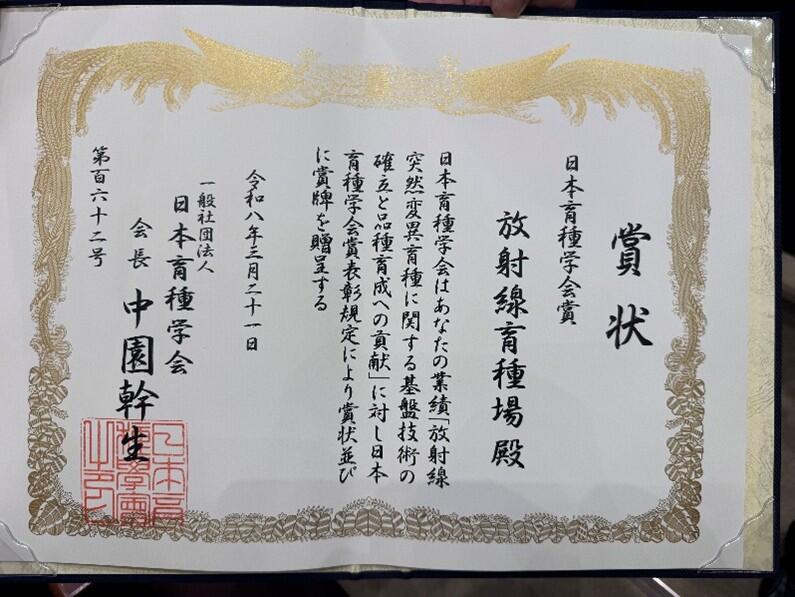 賞状
日本育種学会賞
放射線育種場殿
日本育種学会はあなたの業績「放射線
突然変異育種に関する基盤技術の
確立と品種育成への貢献」に対し日本
育種学会賞表彰規定により賞状並び
に賞牌を贈呈する
令和八年三月二十一日
一般社団法人
日本育種学会
会長 中園幹生
第百六十二号